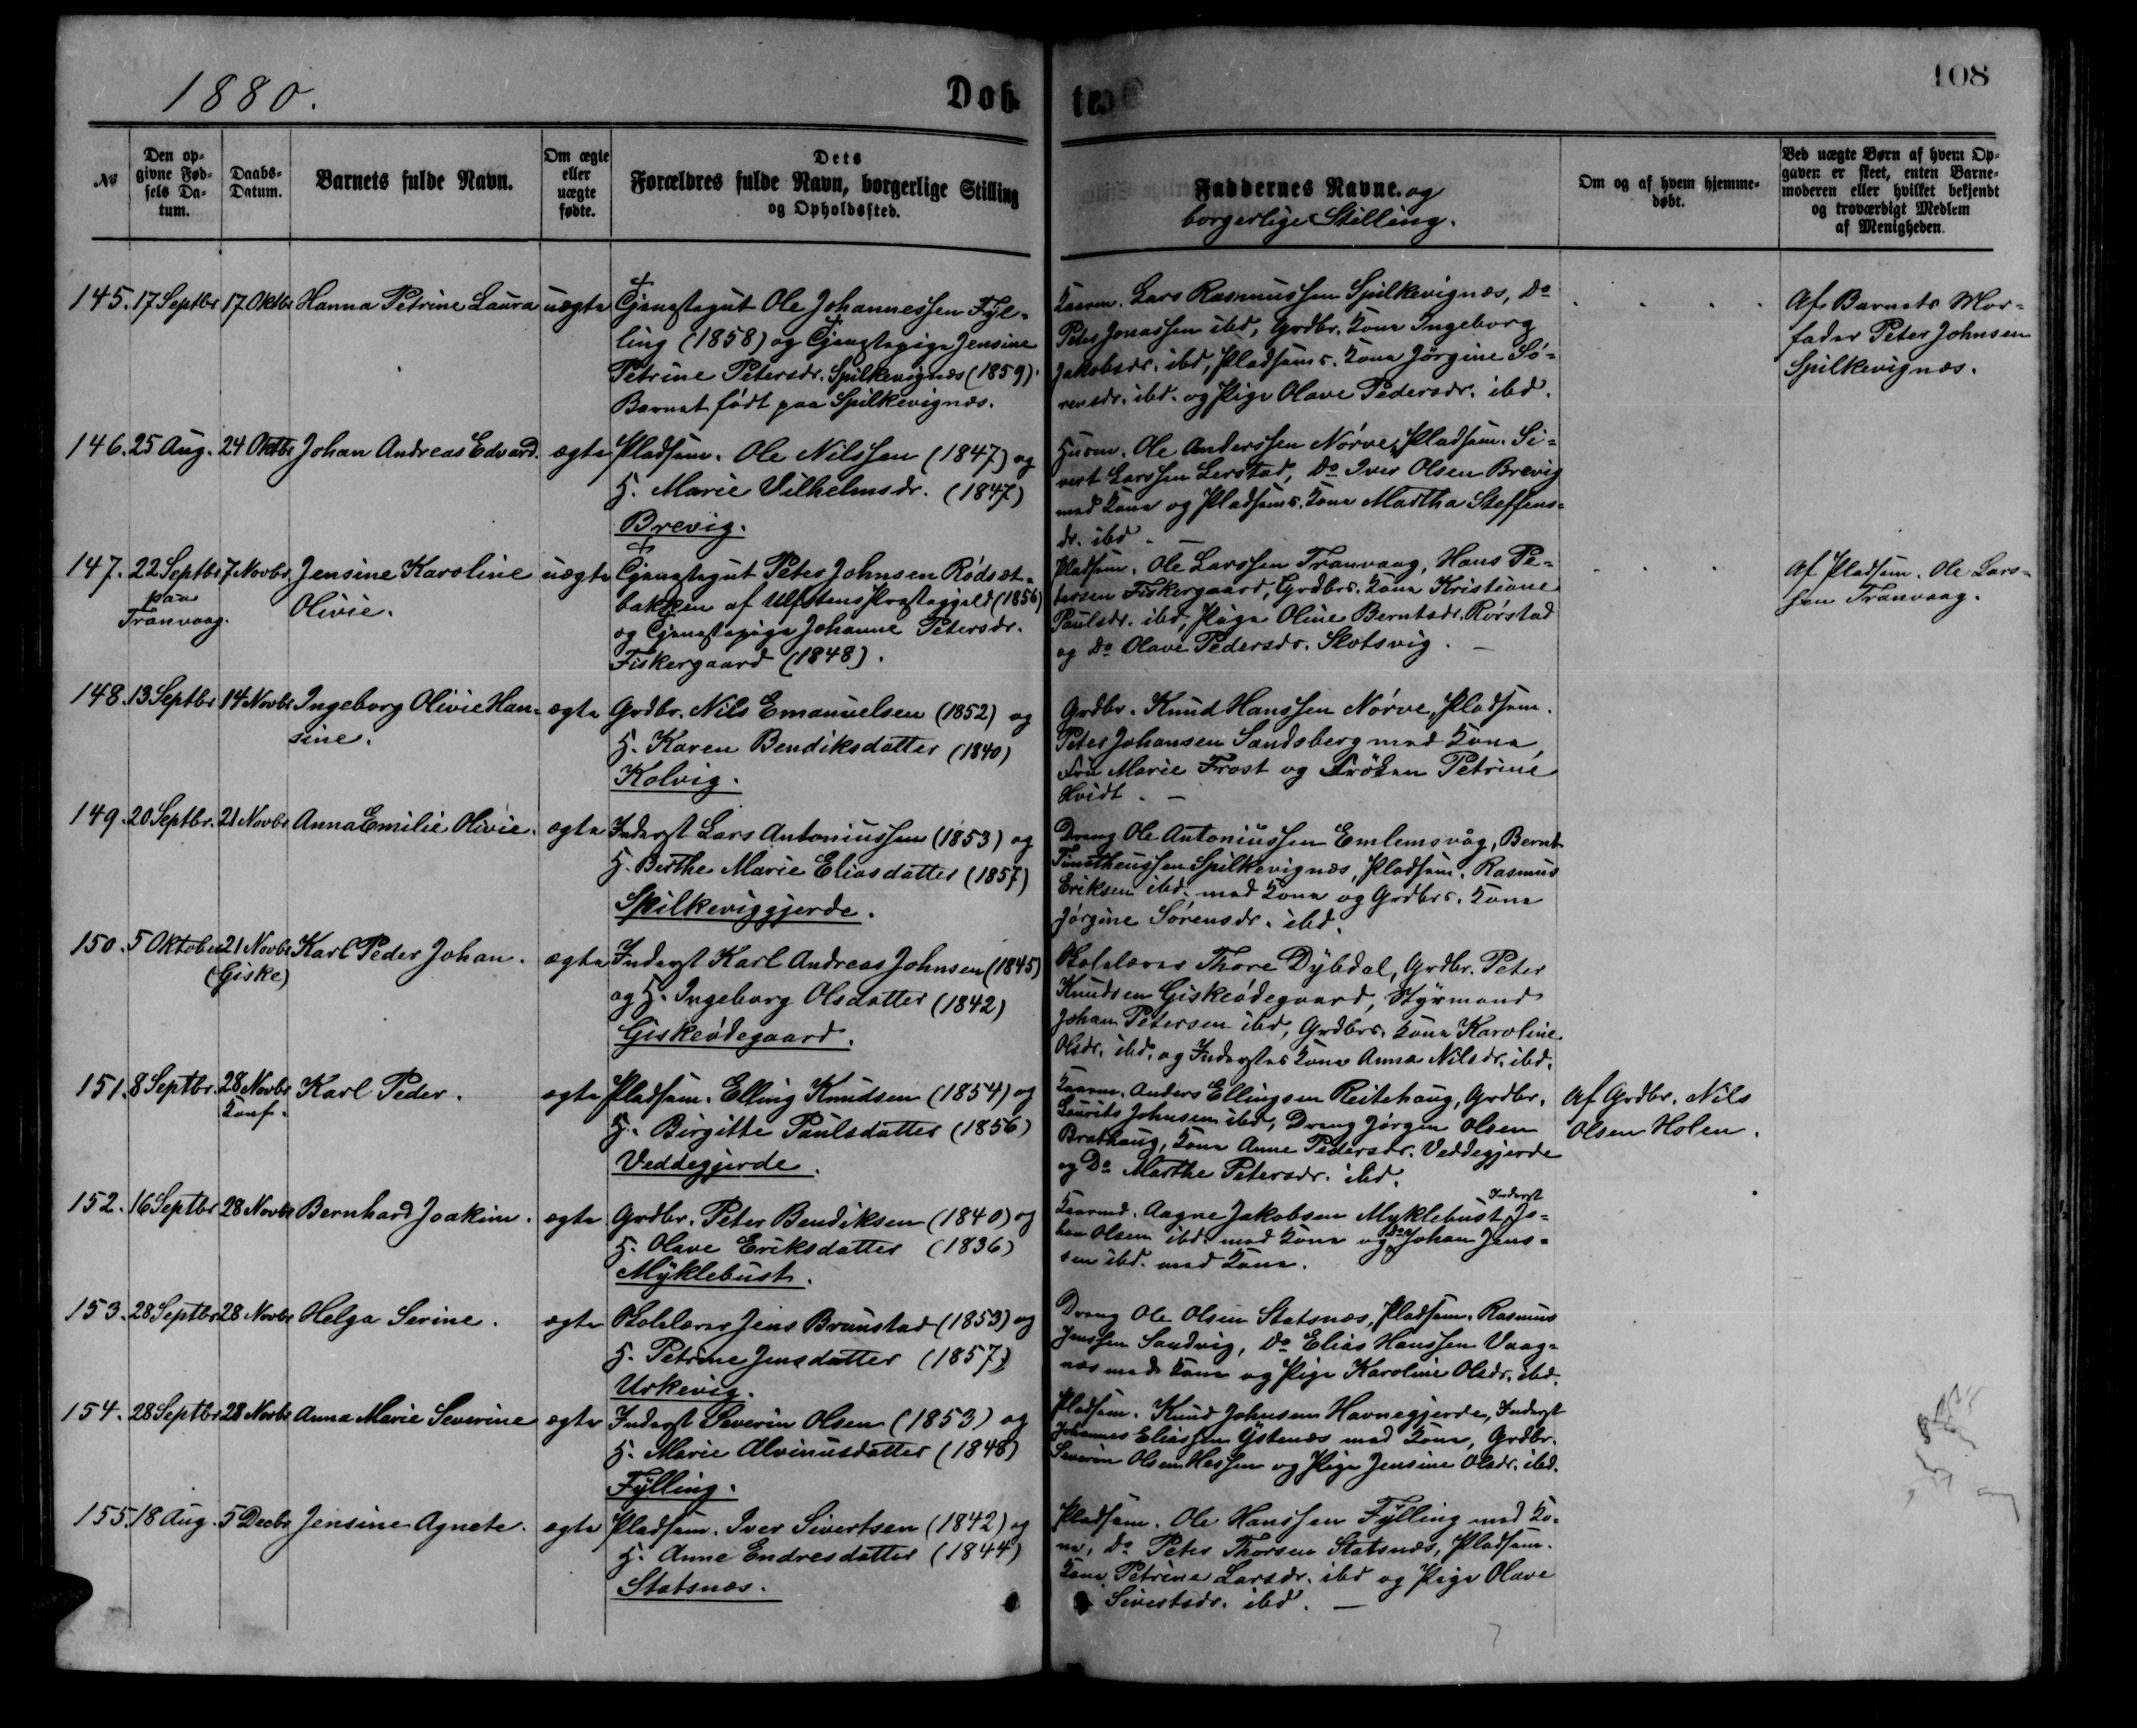 1880.
Døb
te.
108
№
Den op-
givne Fød-
sels Da-
tum.
Daabs-
Datum.
Barnets fulde Navn.
Om ægte
eller
uægte
fødte.
Dets
Forældres fulde Navn, borgerlige Stilling
og Opholdssted.
Faddernes Navne. og
borgerlige Stilling.
Om og af hvem hjemme-
døbt.
Ved uægte Børn af hvem Op-
gaven er skeet, enten Barne-
moderen eller hvilket bekjendt
og troværdigt Medlem
af Menigheden.
145. 17 Septbr 17 Oktbr Hanna Petrine Laura uægte Tjenestegut Ole Johannessen Fyl-
ling (1858) og Tjenestepige Jensine
Petrine Petersdr. Spilkevignæs (1859).
Barnet født paa Spilkevignæs.
Kaarm. Lars Rasmussen Spilkevignæs, Do
Peter Jonassen ibd, Grdbr. Kone Ingeborg
Jakobsdr. ibd, Pladsms. Kone Jörgine Sö-
rensdr. ibd. og Pige Olave Pedersdr. ibd.
Af Barnets Mor-
fader Peter Johnsen
Spilkevignæs.
146. 25 Aug. 24 Oktbr Johan Andreas Edvard. ægte Pladsm. Ole Nilssen (1847) og
H. Marie Vilhelmsdr. (1847)
Brevig.
Husm. Ole Anderssen Nörve, Pladsm. Si-
vert Larssen Lerstad, Do Iver Olsen Brevig
med Kone og Pladsms. Kone Martha Steffens-
dr. ibd. —
147. 22 Septbr 7 Novbr Jensine Karoline uægte Tjenestegut Peter Johnsen Rödsæt-
paa
Tranvaag.
Olivie.
bakken af Ulfstens Præstegjeld (1856)
og Tjenestepige Johanne Petersdr.
Fiskergaard (1848).
Pladsm. Ole Larssen Tranvaag, Hans Pe-
tersen Fiskergaard, Grdbrs. Kone Kristiane
Paulsdr. ibd, Pige Oline Berntsdr. Rörstad
og Do Olave Pedersdr. Slotsvig. —
Af Pladsm. Ole Lars-
sen Tranvaag.
148. 13 Septbr 14 Novbr Ingeborg Olivie Han- ægte Grdbr. Nils Emanuelsen (1852) og
sine.
H. Karen Bendiksdatter (1840)
Kolvig.
Grdbr. Knud Hanssen Nörve, Pladsm.
Peter Johansen Sandsberg med Kone,
Fru Marie Frost og Fröken Petrine
Hvidt. —
149. 20 Septbr. 21 Novbr Anna Emilie Olivie. ægte Inderst Lars Antoniussen (1853) og
H. Berthe Marie Eliasdatter (1857)
Spilkeviggjerde.
Dreng Ole Antoniussen Emlemsvåg, Bernt
Timotheussen Spilkevignæs, Pladsm. Rasmus
Eriksen ibd. med Kone og Grdbrs. Kone
Jörgine Sörensdr. ibd.
150. 5 Oktober 21 Novbr Karl Peder Johan. ægte Inderst Karl Andreas Johnsen (1845)
(Giske)
og H. Ingeborg Olsdatter (1842)
Giskeödegaard.
Skolelærer Thore Dybdal, Grdbr. Peter
Knudsen Giskeödegaard, Styrmand
Johan Petersen ibd, Grdbrs. Kone Karoline
Olsdr. ibd. og Inderstes Kone Anna Nilsdr. ibd.
151. 8 Septbr. 28 Novbr Karl Peder. ægte Pladsm. Elling Knudsen (1854) og
Konf.
H. Birgitte Paulsdatter (1856)
Veddegjerde.
Kaarm. Anders Ellingsen Reitehaug, Grdbr.
Laurits Johnsen ibd, Dreng Jörgen Olsen
Brathaug, Kone Anne Pedersdr. Veddegjerde
og Do Marthe Petersdr. ibd.
Af Grdbr. Nils
Olsen Holen.
152. 16 Septbr 28 Novbr Bernhard Joakim. ægte Grdbr. Peter Bendiksen (1840) og
H. Olave Eriksdatter (1836)
Myklebust.
Inderst
Kaarmd. Aagne Jakobsen Myklebust, Jo-
han Olsen ibd. med Kone og Do Johan Jens-
sen ibd. med Kone.
153. 28 Septbr 28 Novbr Helga Serine. ægte Skolelærer Jens Brunstad (1853) og
H. Petrine Jensdatter (1857)
Urkevig.
Dreng Ole Olsen Statsnæs, Pladsm. Rasmus
Jenssen Sandvig, Do Elias Hanssen Vaag-
næs med Kone og Pige Karoline Olsdr. ibd.
154. 28 Septbr 28 Novbr Anna Marie Severine ægte Inderst Severin Olsen (1853) og
H. Marie Alvinusdatter (1848)
Fylling.
Pladsm. Knud Johnsen Havnegjerde, Inderst
Johannes Eliassen Ystenæs med Kone, Grdbr.
Severin Olsen Hessen og Pige Jensine Olsdr. ibd.
155. 18 Aug. 5 Decbr Jensine Agnete. ægte Pladsm. Iver Sivertsen (1842) og
H. Anne Endresdatter (1844)
Statsnæs.
Pladsm. Ole Hanssen Fylling med Ko-
ne, Do Peter Thorsen Statsnæs, Pladsm.
Kone Petrine Larsdr. ibd og Pige Olave
Sivertsdr. ibd. —